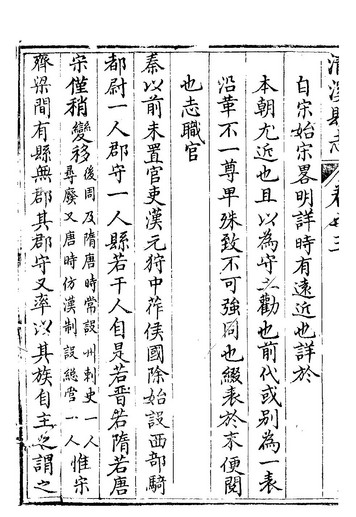 清溪縣志 卷之三
自宋始宋畧明詳時有遠近也詳於
本朝尤近也且以為守之勸也前代或別為一表
沿革不一尊卑殊致不可強同也綴表於末便閱
也志職官
秦以前未置官吏漢元狩中莋侯國除始設西部騎
都尉一人郡守一人縣若干人自是若晉若隋若唐
宋僅稍變移後周及隋唐時常設州刺史一人
尋廢又唐時仿漢制設總管一人惟宋
齊梁間有縣無郡其郡守又率以其族自主之謂之